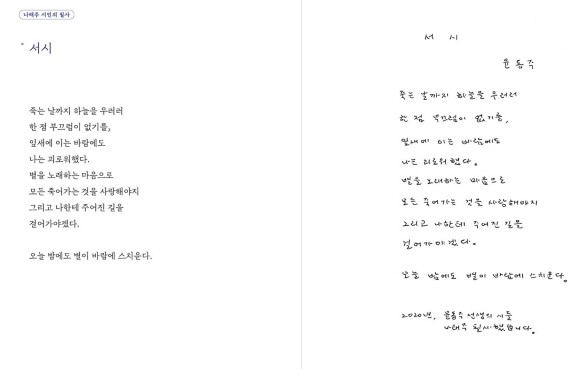 나태주 시인의 필사
서시
죽는 날까지 하늘을 우러러
한 점 부끄럼이 없기를,
잎새에 이는 바람에도
나는 괴로워했다.
별을 노래하는 마음으로
모든 죽어가는 것을 사랑해야지
그리고 나한테 주어진 길을
걸어가야겠다.
오늘 밤에도 별이 바람에 스치운다.
서 시
윤동주
죽는 날까지 하늘을 우러러
한 점 부끄럼이 없기를,
잎새에 이는 바람에도
나는 괴로워했다.
별을 노래하는 마음으로
모든 죽어가는 것을 사랑해야지
그리고 나한테 주어진 길을
걸어가야겠다.
오늘 밤에도 별이 바람에 스치운다.
2020년, 윤동주 선생의 시를
나태주 필사했습니다.